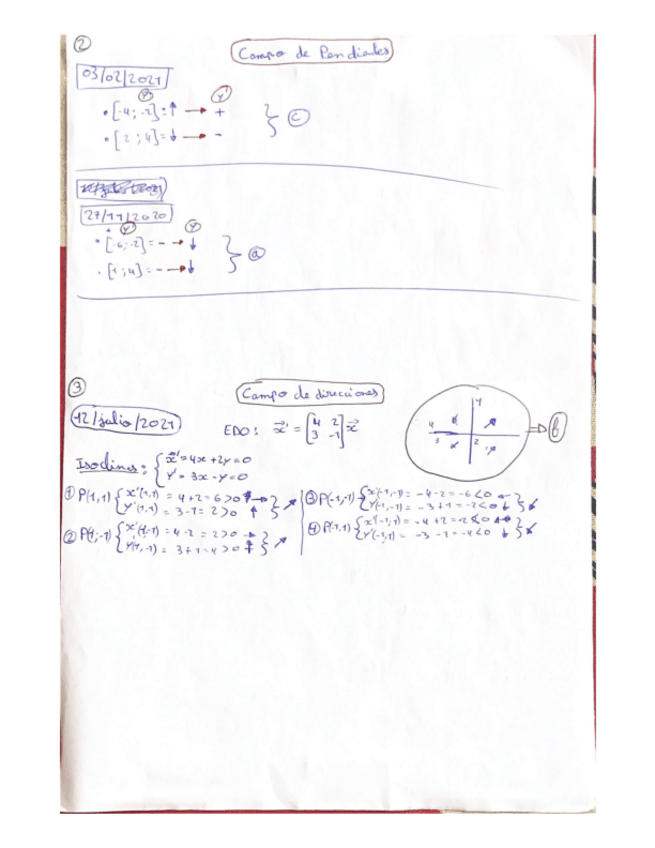 ②
Campo de Pendientes
03/02/2021
Y Y'
• [-4; -2] = ↑ → +
• [2 ; 4] = ↓ → -
} ⓒ
27/11/2020
Y' Y
• [-6; -2] = - → ↓
• [1; 4] = - → ↓
} ⓐ
③
Campo de direcciones
12/julio/2021
EDO: x⃗' = [4 2; 3 -1] x⃗
Isoclinas: { x' = 4x + 2y = 0
Y' = 3x - Y = 0
① P(1,1) { x'(1,1) = 4 + 2 = 6 > 0 → } ↗
Y'(1,1) = 3 - 1 = 2 > 0 ↑
② P(1,-1) { x'(1,-1) = 4 - 2 = 2 > 0 → } ↗
Y'(1,-1) = 3 + 1 = 4 > 0 ↑
③ P(-1,-1) { x'(-1,-1) = -4 - 2 = -6 < 0 ← } ↙
Y'(-1,-1) = -3 + 1 = -2 < 0 ↓
④ P(-1,1) { x'(-1,1) = -4 + 2 = -2 < 0 ← } ↙
Y'(-1,1) = -3 - 1 = -4 < 0 ↓
Y
4
3 2